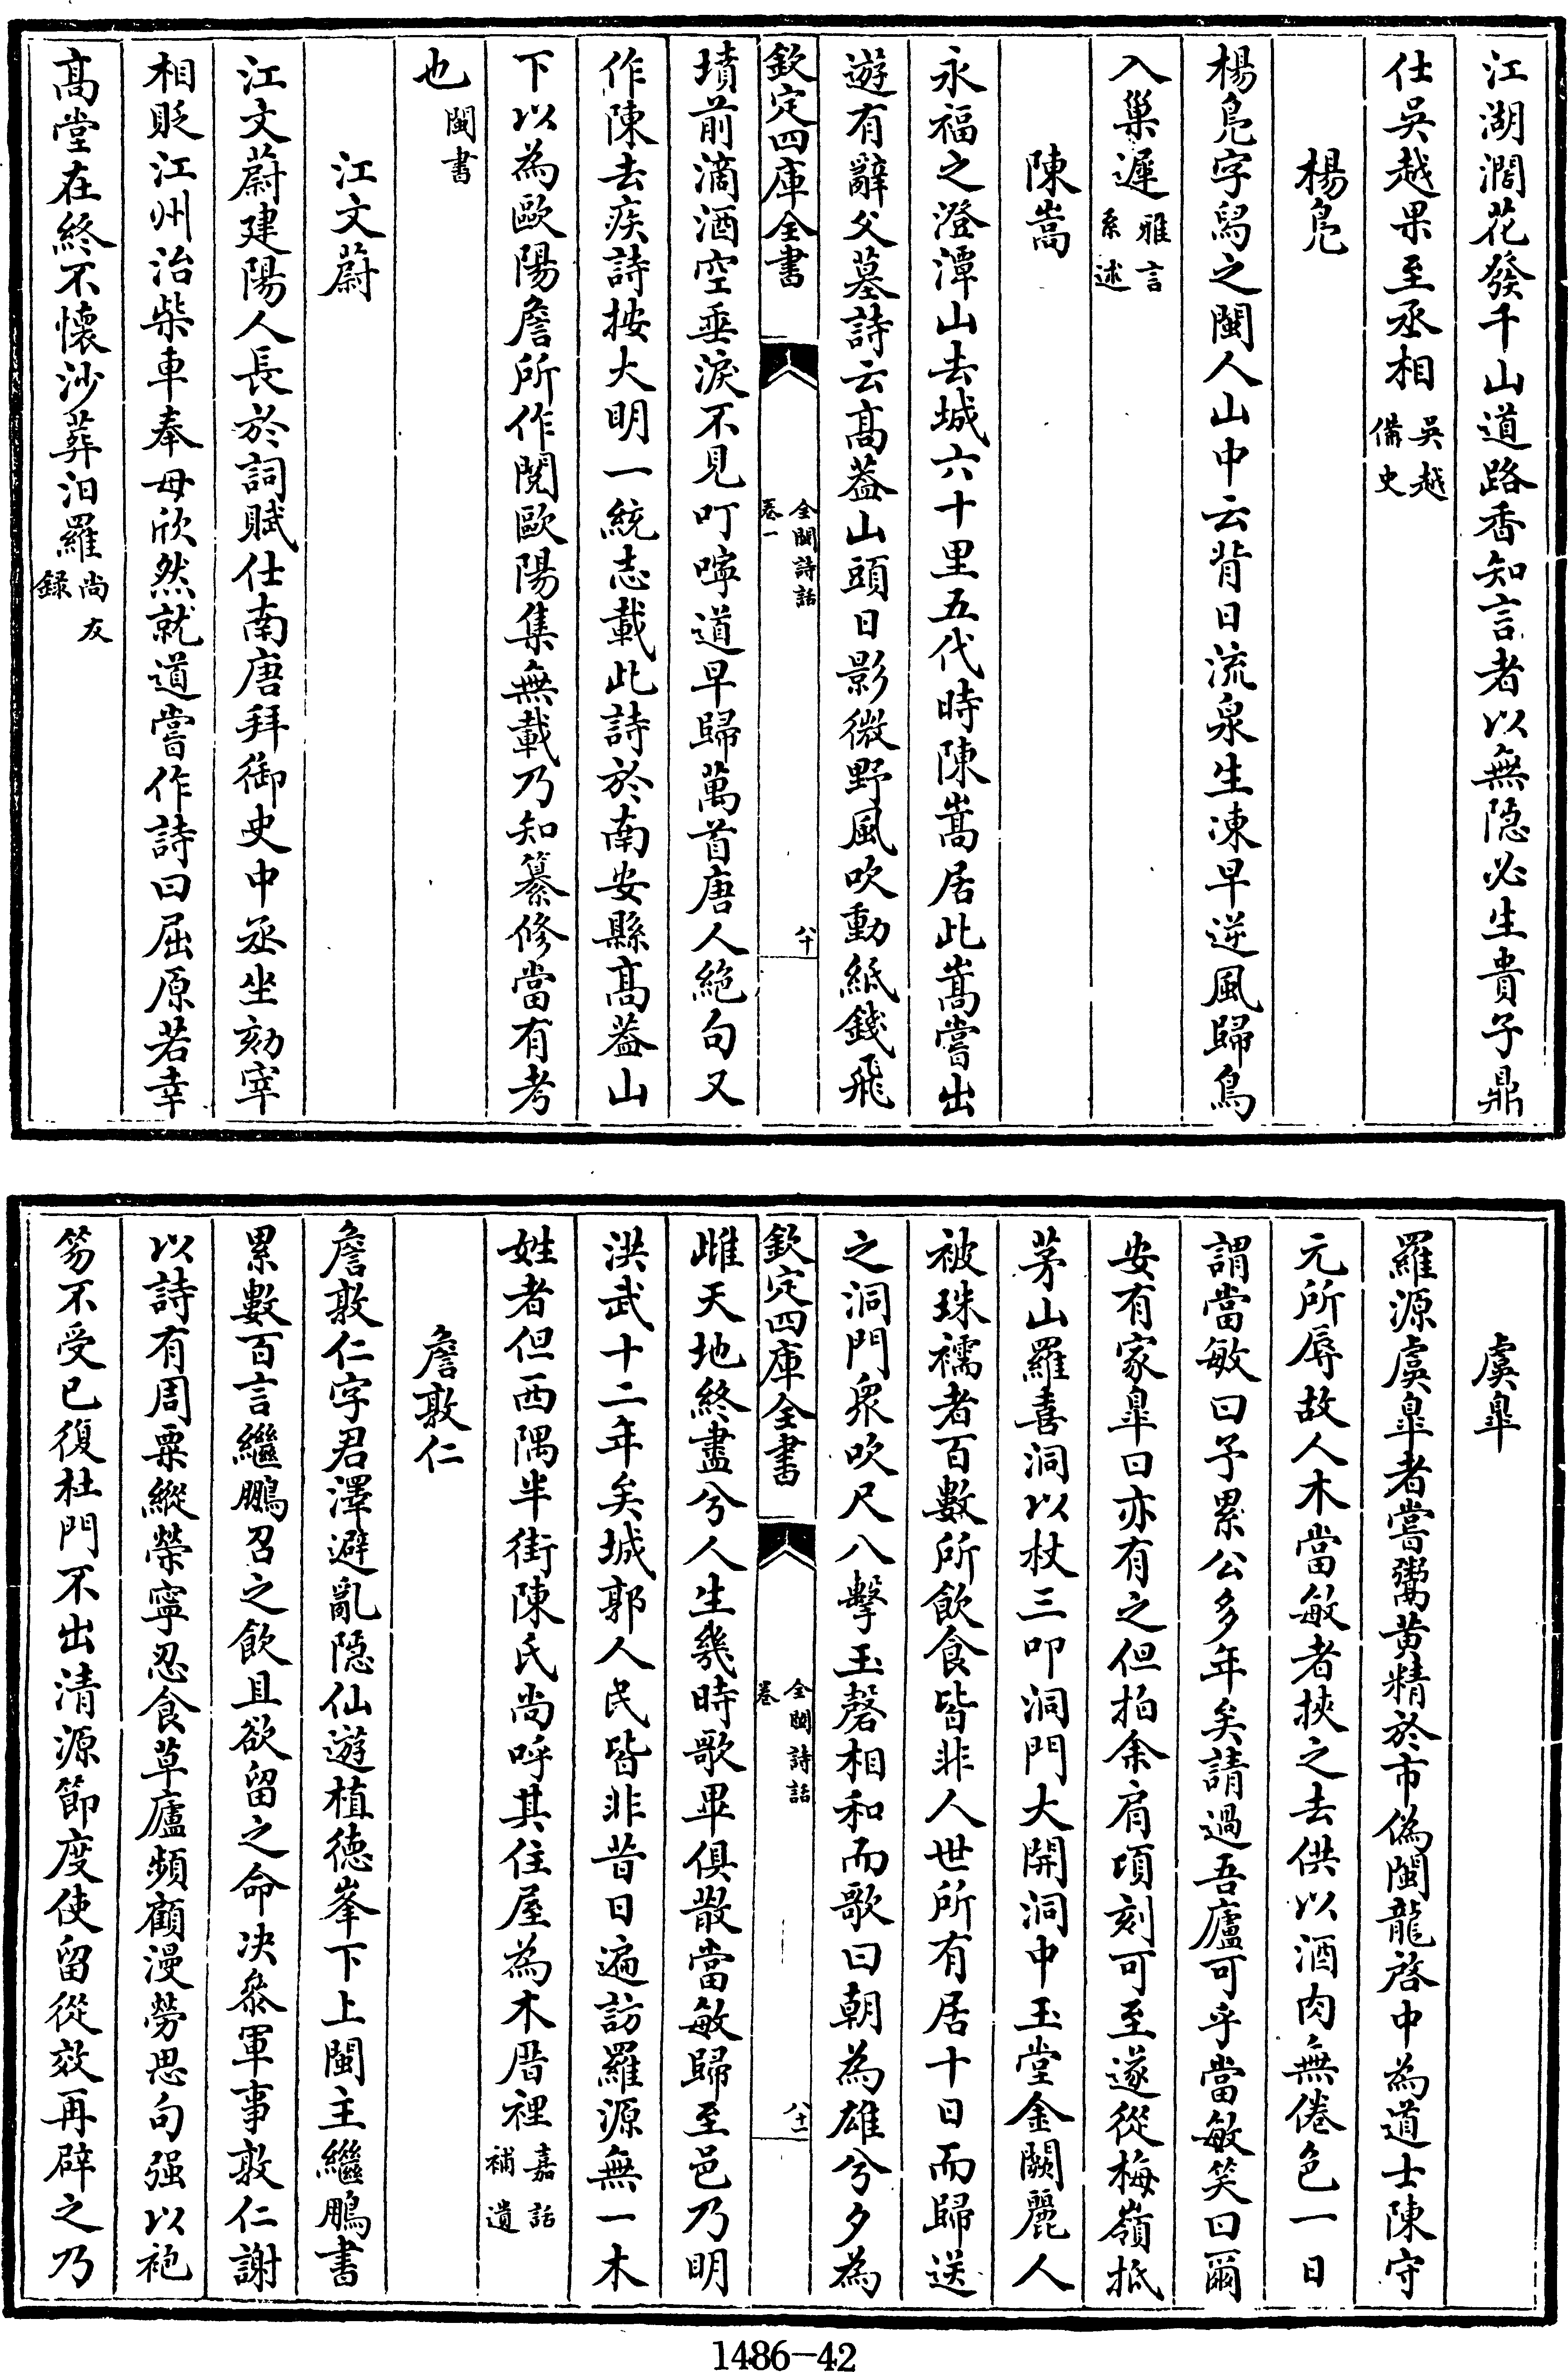 江湖濶花發千山道路香知言者以無隠必生貴子鼎
仕吳越果至丞相吳越備史
楊鳬
楊鳬字舄之閩人山中云背日流泉生凍早逆風歸鳥
入巢遲雅言系述
陳嵩
永福之澄潭山去城六十里五代時陳嵩居此嵩嘗出
遊有辭父墓詩云髙葢山頭日影微野風吹動紙錢飛
欽定四庫全書 全閩詩話卷一 八十
墳前滴酒空垂淚不見叮嚀道早歸萬首唐人絶句又
作陳去疾詩按大明一統志載此詩於南安縣髙葢山
下以為歐陽詹所作閱歐陽集無載乃知纂修當有考
也閩書
江文蔚
江文蔚建陽人長於詞賦仕南唐拜御史中丞坐劾宰
相貶江州治柴車奉母欣然就道嘗作詩曰屈原若幸
髙堂在終不懷沙葬汨羅尚友録
虞臯
羅源虞臯者嘗鬻黄精於市偽閩龍啓中為道士陳守
元所辱故人木當敏者挾之去供以酒肉無倦色一日
謂當敏曰予累公多年矣請過吾廬可乎當敏笑曰爾
安有家臯曰亦有之但拍余肩頃刻可至遂從梅嶺抵
茅山羅喜洞以杖三叩洞門大開洞中玉堂金闕麗人
被珠襦者百數所飲食皆非人世所有居十日而歸送
之洞門衆吹尺八擊玉磬相和而歌曰朝為雄兮夕為
欽定四庫全書 全閩詩話卷 八十一
雌天地終盡兮人生幾時歌畢俱散當敏歸至邑乃明
洪武十二年矣城郭人民皆非昔日遍訪羅源無一木
姓者但西隅半街陳氏尚呼其住屋為木厝裡嘉話補遺
詹敦仁
詹敦仁字君澤避亂隠仙遊植德峯下上閩主繼鵬書
累數百言繼鵬召之飲且欲留之命决叅軍事敦仁謝
以詩有周粟縱榮寧忍食草廬頻顧漫勞思句强以袍
笏不受已復杜門不出清源節度使留從效再辟之乃
1486-42